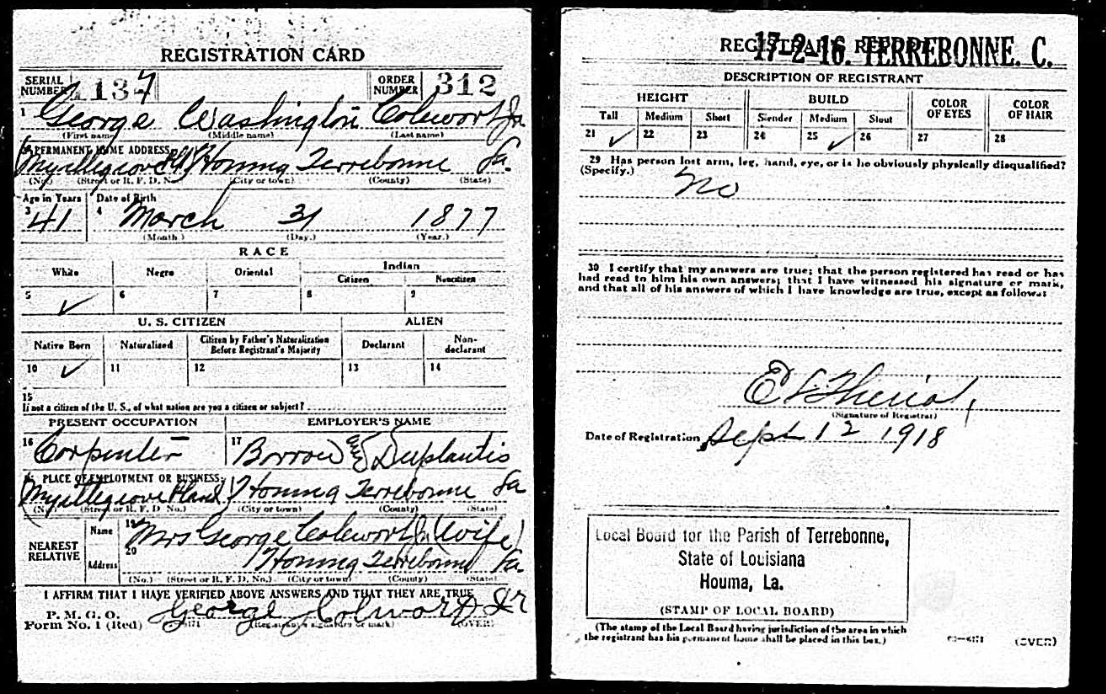 REGISTRATION CARD
SERIAL NUMBER 1134 ORDER NUMBER 312
1 George Washington Colwort Jr
(First name) (Middle name) (Last name)
2 PERMANENT HOME ADDRESS:
Myrtlegrove Houma Terrebonne La.
(No.) (Street or R. F. D. No.) (City or town) (County) (State)
Age in Years Date of Birth
3 41 4 March 31 1877
(Month.) (Day.) (Year.)
RACE
White Negro Oriental Indian
Citizen Noncitizen
5 ✓ 6 7 8 9
U. S. CITIZEN ALIEN
Native Born Naturalized Citizen by Father's Naturalization Before Registrant's Majority Declarant Non-declarant
10 ✓ 11 12 13 14
15
If not a citizen of the U. S., of what nation are you a citizen or subject?
PRESENT OCCUPATION EMPLOYER'S NAME
16 Carpenter 17 Borrow and Duplantis
PLACE OF EMPLOYMENT OR BUSINESS:
Myrtlegrove Houma Terrebonne La
(No.) (Street or R. F. D. No.) (City or town) (County) (State)
NEAREST RELATIVE Name 19 Mrs George Jr (wife)
Address 20 Houma Terrebonne La.
(No.) (Street or R. F. D. No.) (City or town) (County) (State)
I AFFIRM THAT I HAVE VERIFIED ABOVE ANSWERS AND THAT THEY ARE TRUE
P. M. G. O.
Form No. 1 (Red) George Colwort Jr
(Registrant's signature or mark) (OVER)
REGISTRAR'S REPORT 17-2-16. TERREBONNE. C.
DESCRIPTION OF REGISTRANT
HEIGHT BUILD COLOR OF EYES COLOR OF HAIR
Tall Medium Short Slender Medium Stout
21 ✓ 22 23 24 25 ✓ 26 27 28
29 Has person lost arm, leg, hand, eye, or is he obviously physically disqualified?
(Specify.) No
30 I certify that my answers are true; that the person registered has read or has
had read to him his own answers; that I have witnessed his signature or mark,
and that all of his answers of which I have knowledge are true, except as follows:
E L Theriot
(Signature of Registrar)
Date of Registration Sept 12 1918
Local Board for the Parish of Terrebonne,
State of Louisiana
Houma, La.
(STAMP OF LOCAL BOARD)
(The stamp of the Local Board having jurisdiction of the area in which
the registrant has his permanent home shall be placed in this box.)
(OVER)